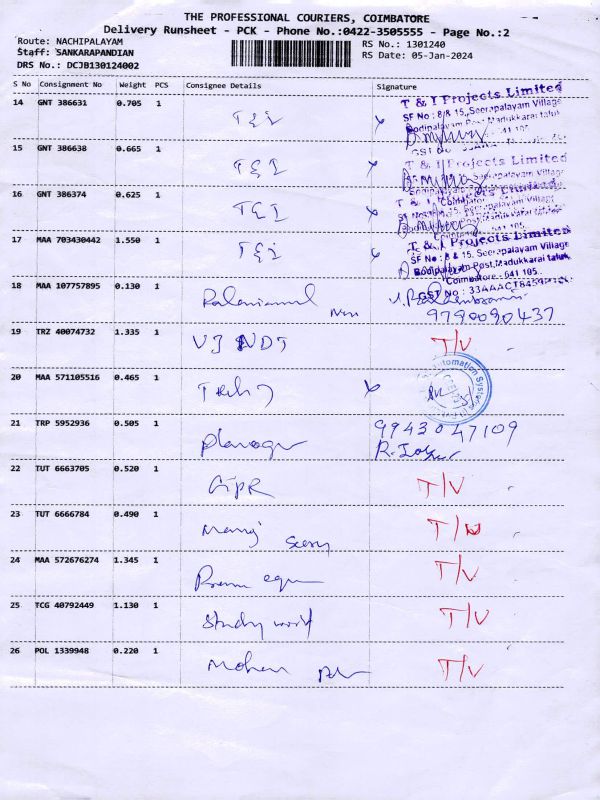 THE PROFESSIONAL COURIERS, COIMBATORE
Delivery Runsheet - PCK - Phone No.:0422-3505555 - Page No.:2
Route: NACHIPALAYAM
RS No.: 1301240
Staff: SANKARAPANDIAN
RS Date: 05-Jan-2024
DRS No.: DCJB130124002
S No Consignment No Weight PCS Consignee Details Signature
14 GNT 386631 0.705 1 T & I
T & I Projects Limited
SF No : 8 & 15, Seerapalayam Village
Bodipalayam Post, Madukkarai taluk
15 GNT 386638 0.665 1 T & I
T & I Projects Limited
16 GNT 386374 0.625 1 T & I
17 MAA 703430442 1.550 1 T & I
T & I Projects Limited
SF No : 8 & 15, Seerapalayam Village
Bodipalayam Post, Madukkarai taluk
Coimbatore - 641 105.
18 MAA 107757895 0.130 1
9790090437
19 TRZ 40074732 1.335 1 T/V
20 MAA 571105516 0.465 1
21 TRP 5952936 0.505 1
9943047109
22 TUT 6663705 0.520 1 T/V
23 TUT 6666784 0.490 1 T/V
24 MAA 572676274 1.345 1 T/V
25 TCG 40792449 1.130 1 Study T/V
26 POL 1339948 0.220 1 Mohan T/V